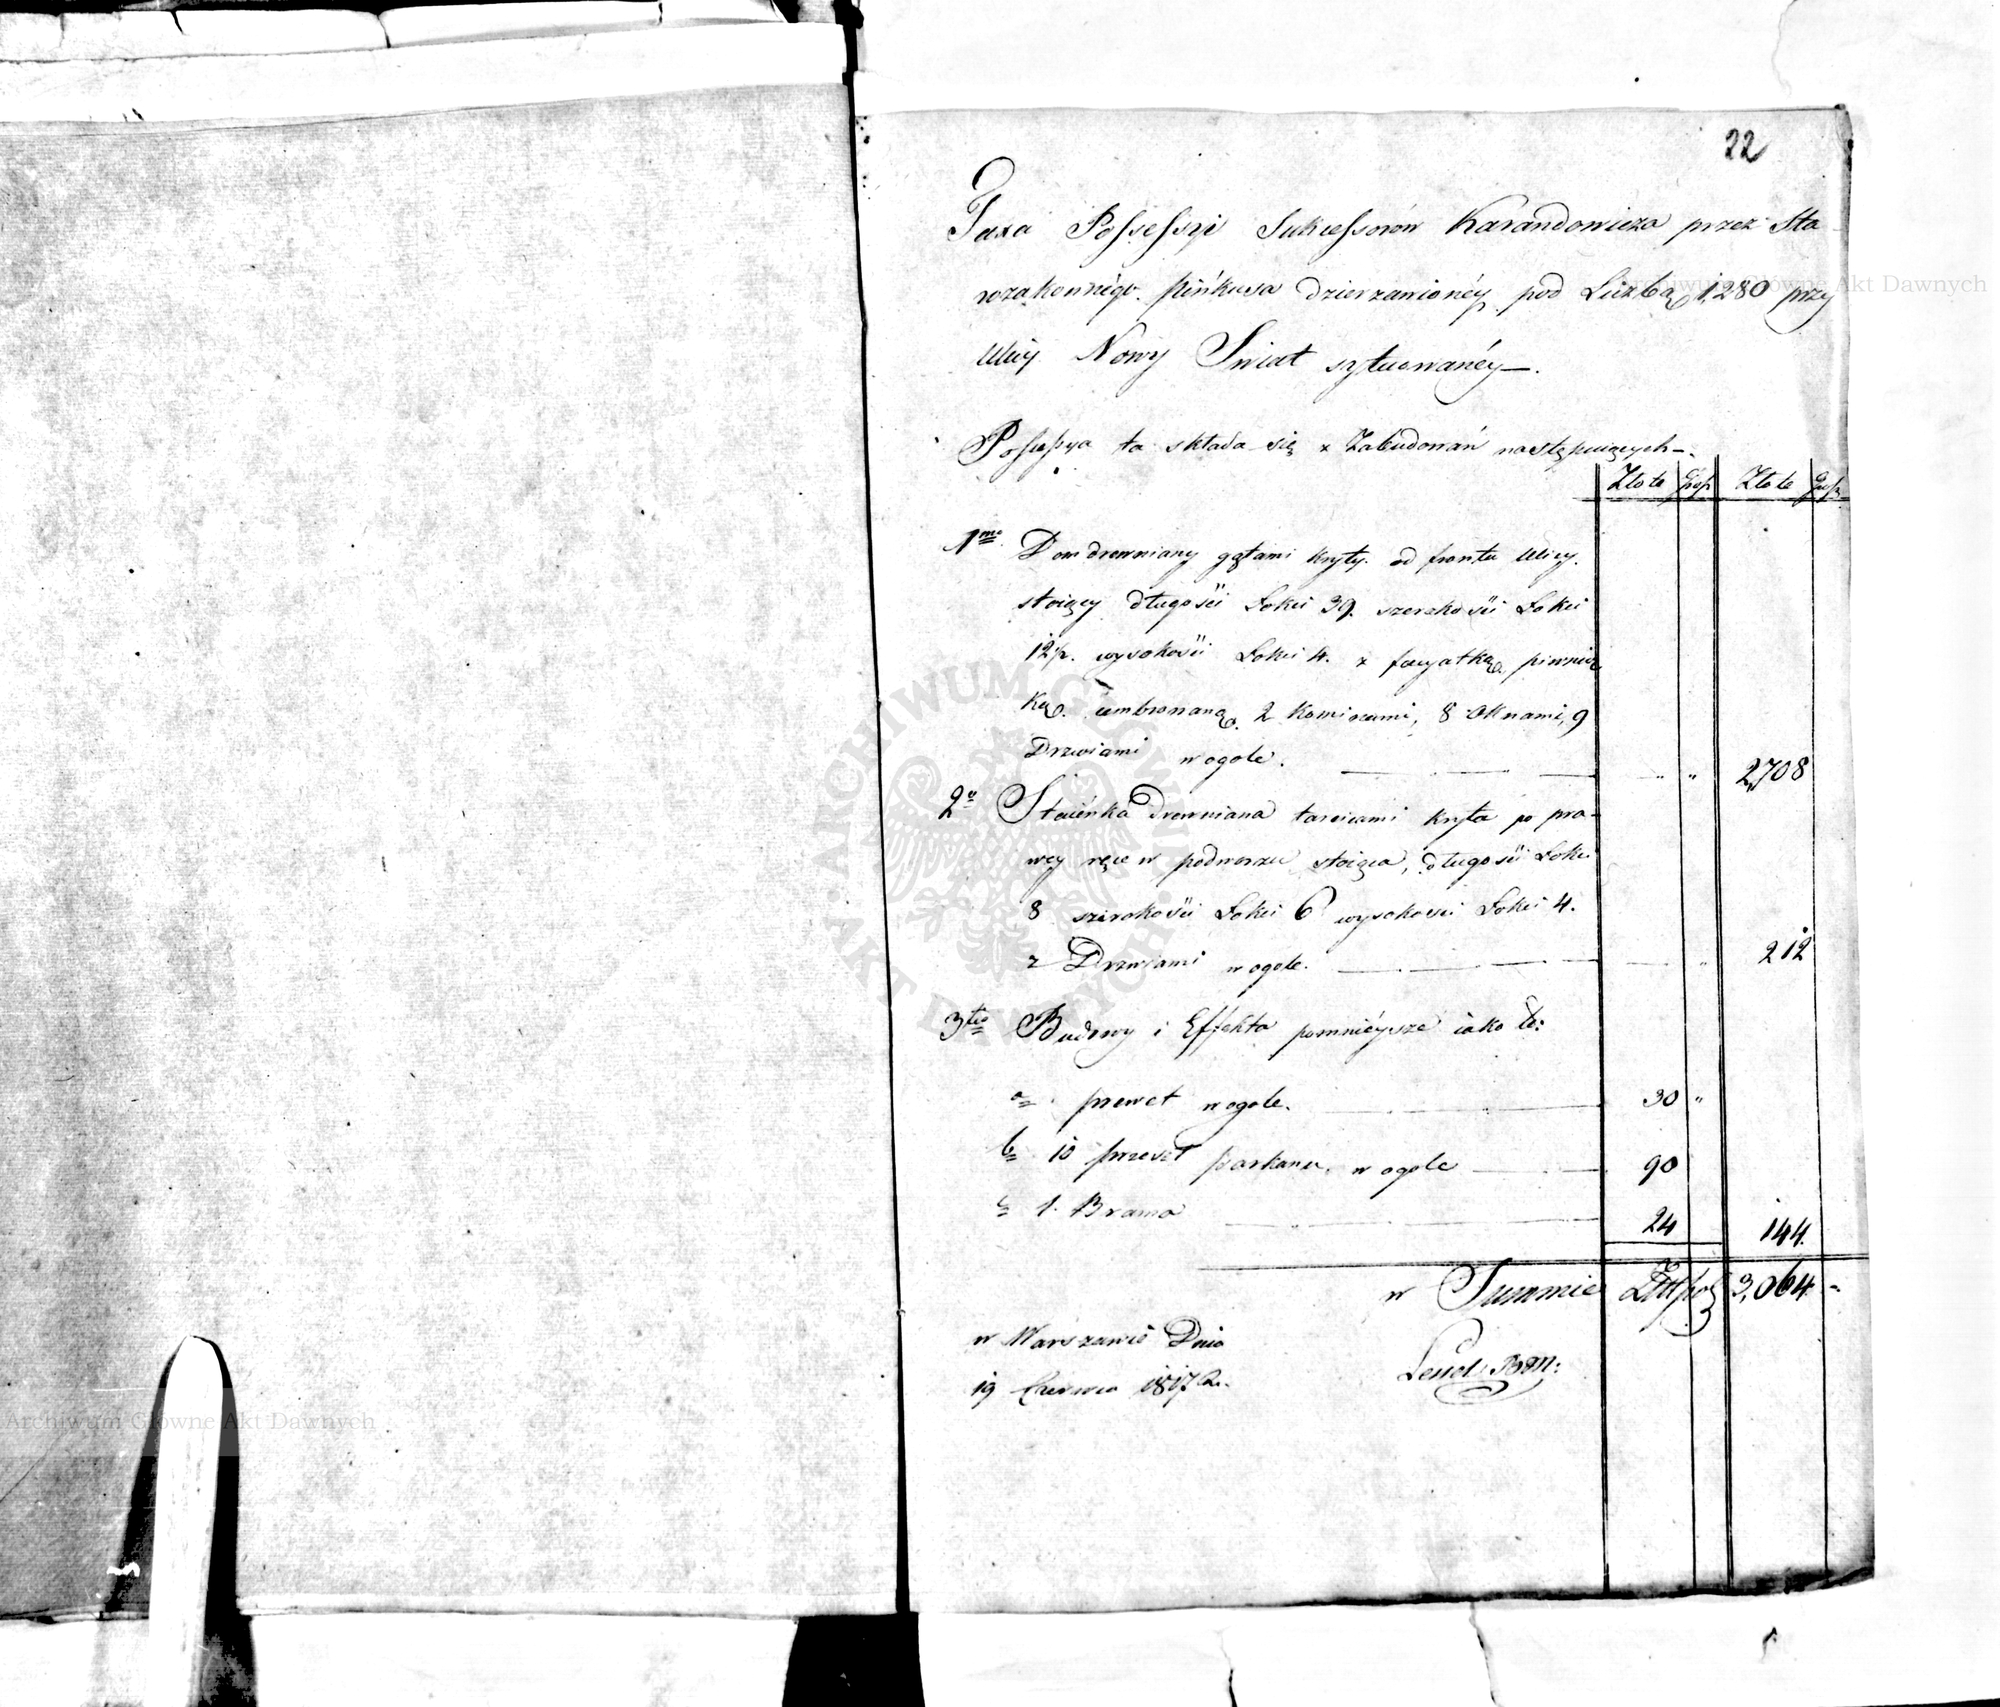 22
Taxa Possessyi Sukcessorów Karandowicza przez Sta
rozakonnégo Pińkusa dzierzawionéy pod Liczbą 1,280 przy
Ulicy Nowy Swiat sytuowanéy —.
Possessya ta składa się z Zabudowań następuiących —.
Złote Grosz Złote Grosz
1mo Dom drewniany gątami kryty od frontu Ulicy
stoiący długości Łokci 39. szerokości Łokci
12½. wysokości Łokci 4. z facyatką, piwnicz
ką cembrowaną, 2 Kominami, 8 Oknami, 9
Drzwiami w ogole. — " 2,708
2o Staienka drewniana tarcicami kryta po pra-
wey ręce w podworzu stoiąca, długości Łokci
8 szerokości Łokci 6 wysokości Łokci 4.
z Drzwiami w ogole. — " 212
3tio Budowy i Effekta pomnieysze iako to:
a prewet w ogole. — 30 "
b 10 przeseł parkanu w ogole — 90
c 1. Brama — 24 144.
w Summie Złł pol 3,064 -
w Warszawie Dnia
19 Czerwca 1817 R.
Archiwum Główne Akt Dawnych
Archiwum Główne Akt Dawnych
ARCHIWUM GŁÓWNE AKT DAWNYCH